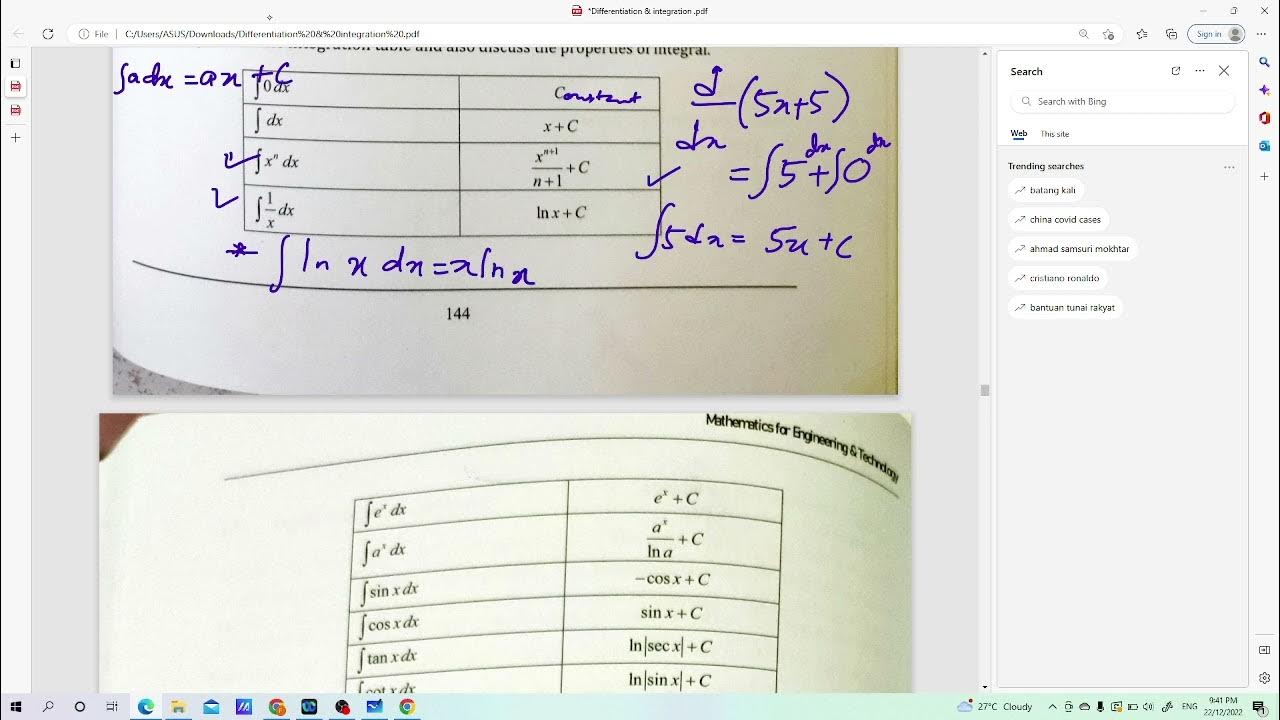 *Differentiation & integration .pdf
File C:/Users/ASUS/Downloads/Differentiation%20&%20integration%20.pdf Sign in
integration table and also discuss the properties of integral.
∫a dx = ax + C
∫0 dx Constant
∫ dx x + C
∫ xⁿ dx xⁿ⁺¹/n+1 + C
∫ 1/x dx ln x + C
* ∫ ln x dx = x ln x
d/dx (5x+5)
= ∫5 dx + ∫0 dx
∫5 dx = 5x + c
144
Mathematics for Engineering & Technology
∫eˣ dx eˣ + C
∫aˣ dx aˣ/ln a + C
∫sin x dx −cos x + C
∫cos x dx sin x + C
∫tan x dx ln|sec x| + C
∫cot x dx ln|sin x| + C
Search
Search with Bing
Web This site
Trending searches
batang kali
china covid cases
ahmad samsuri mokhtar
cristiano ronaldo
bantuan tunai rakyat
27°C Cloudy ENG 9:41 PM
22/12/2022